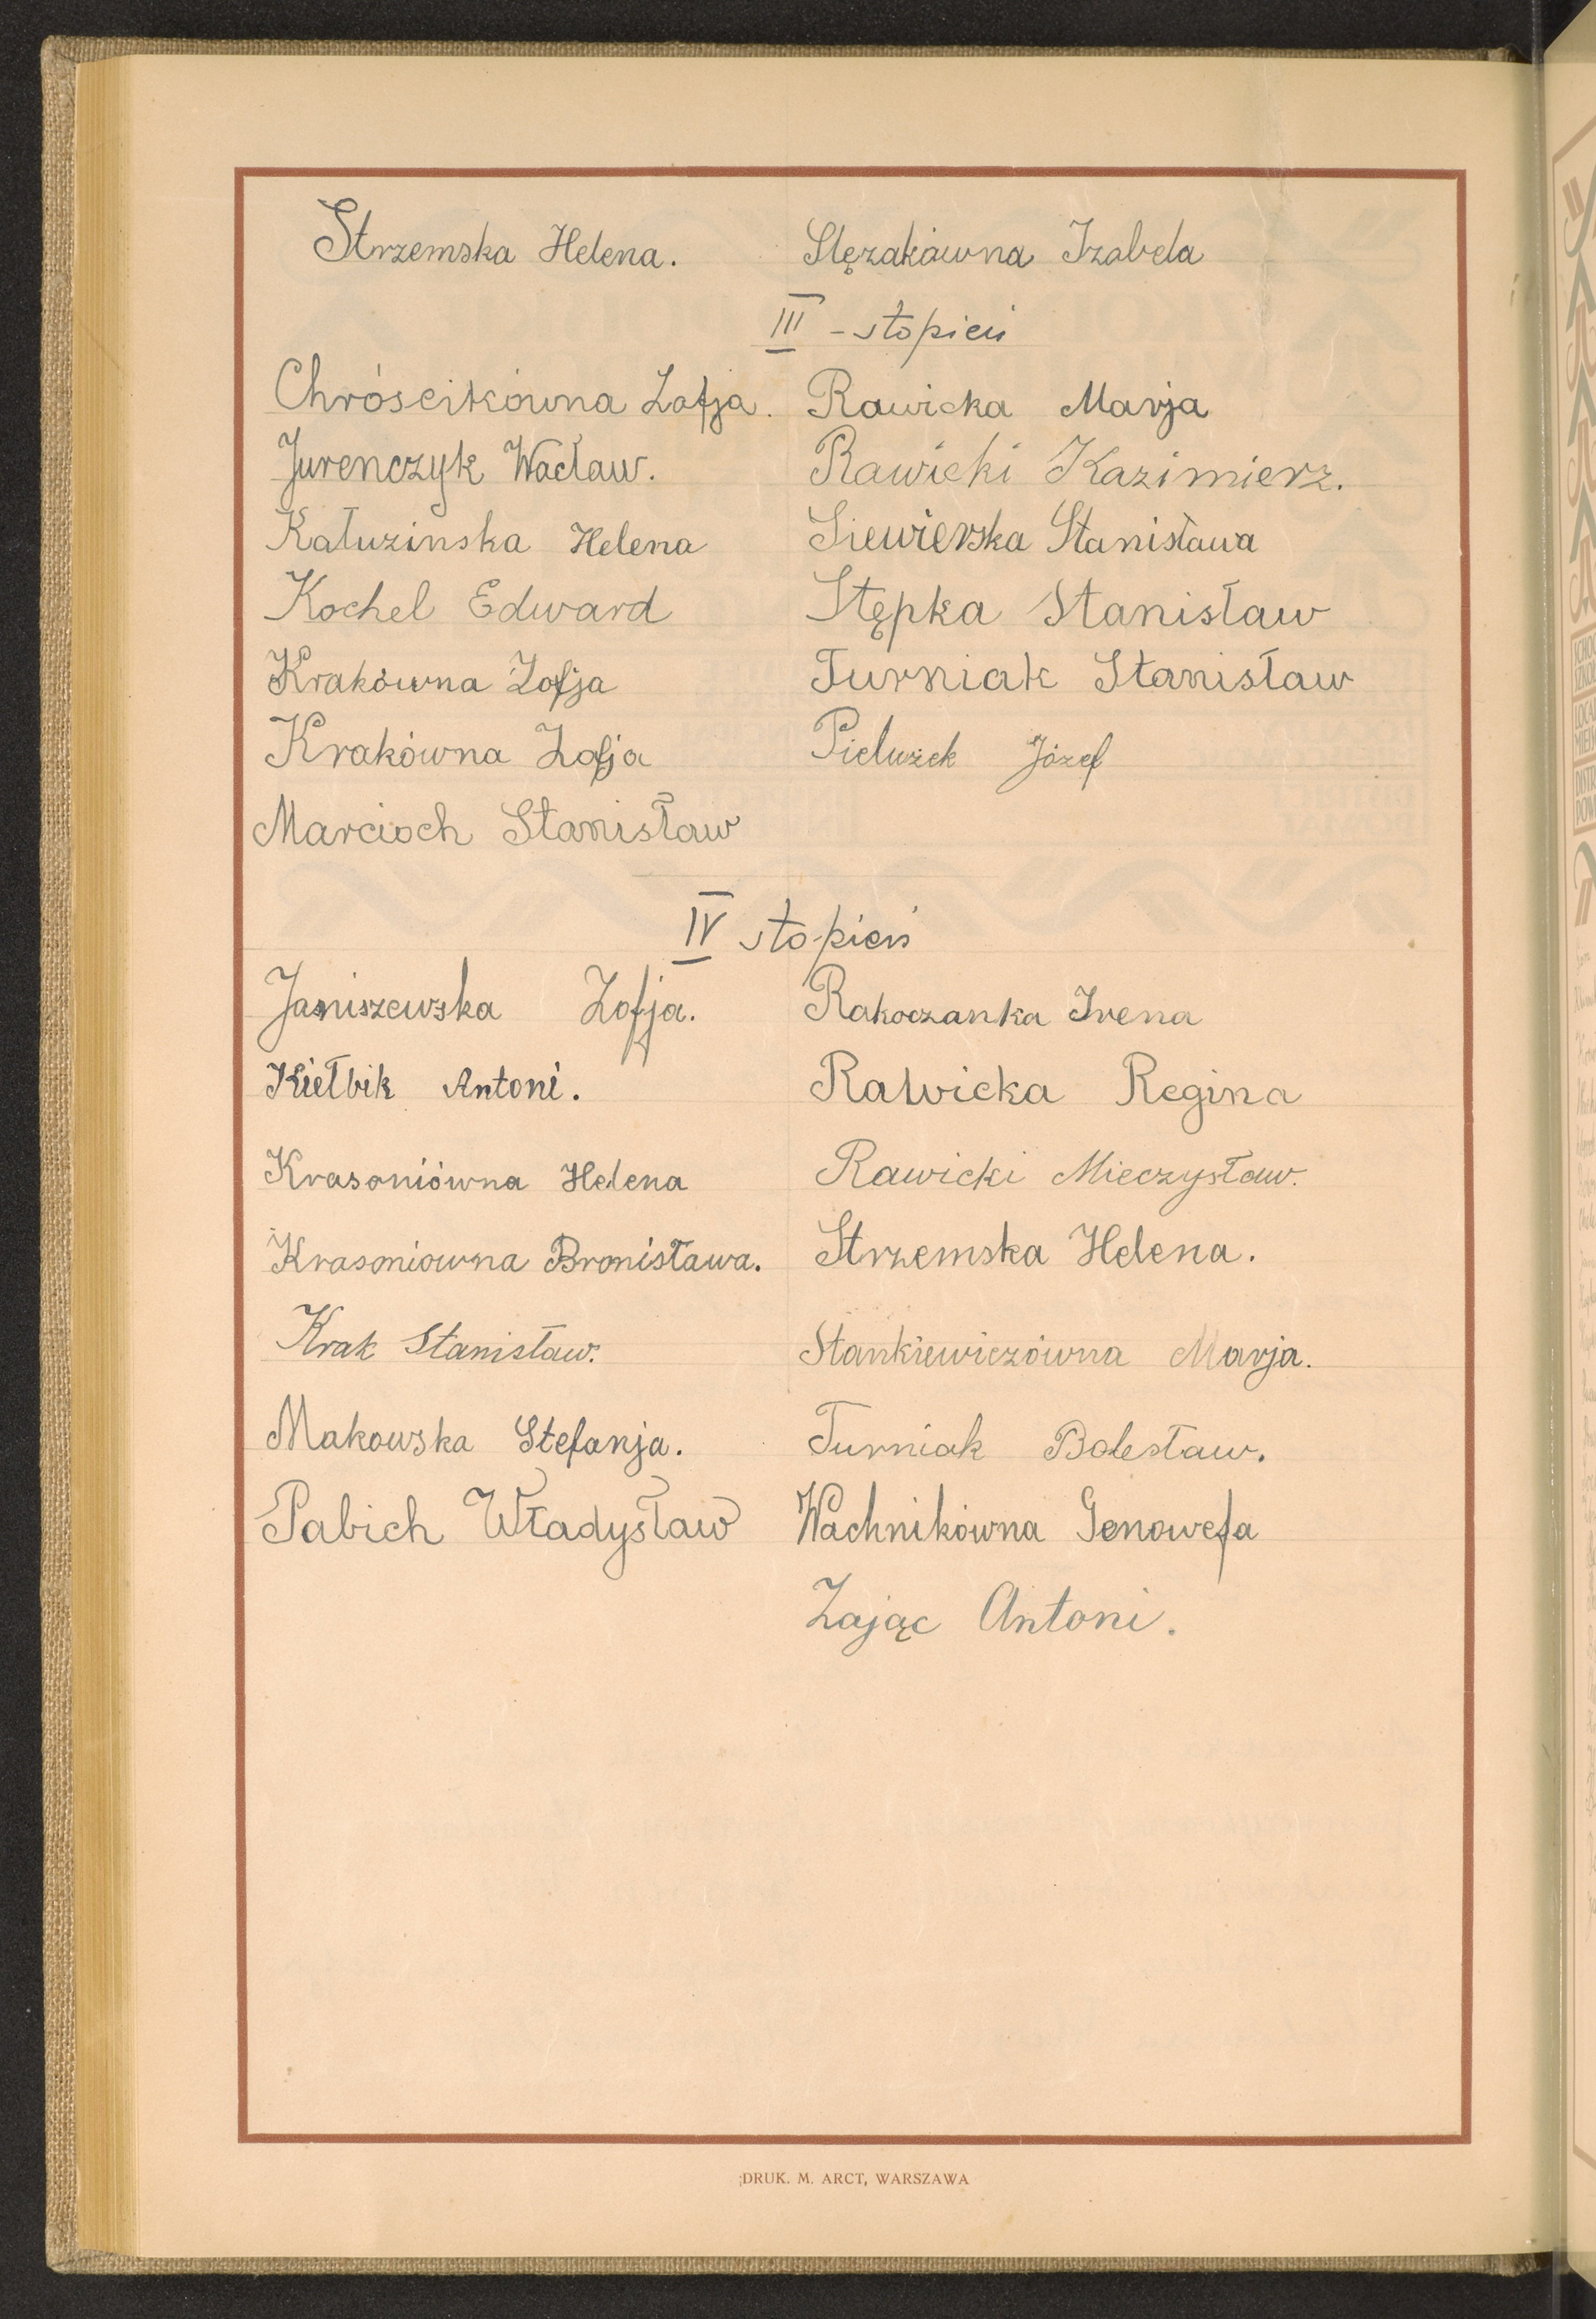 Strzemska Helena. Slęzakówna Izabela
III - stopień
Chróscikówna Zofja. Rawicka Marja
Jurenczyk Wacław. Rawicki Kazimierz.
Kałuzinska Helena Siewierska Stanisława
Kochel Edward Stępka Stanisław
Krakówna Zofja Turniak Stanisław
Krakówna Zofja Pielużek Józef
Marcioch Stanisław
IV stopień
Janiszewska Zofja. Rakoczanka Irena
Kiełbik Antoni. Rawicka Regina
Krasoniówna Helena Rawicki Mieczysław.
Krasoniowna Bronisława. Strzemska Helena.
Krak Stanisław. Stankiewiczówna Marja.
Makowska Stefanja. Turniak Bolesław.
Pabich Władysław Wachnikówna Genowefa
Zając Antoni.
DRUK. M. ARCT, WARSZAWA